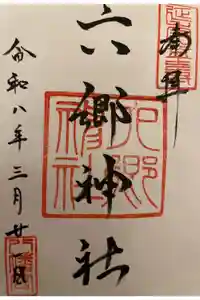 奉拝
六郷神社
六郷
神社
令和八年三月廿一日